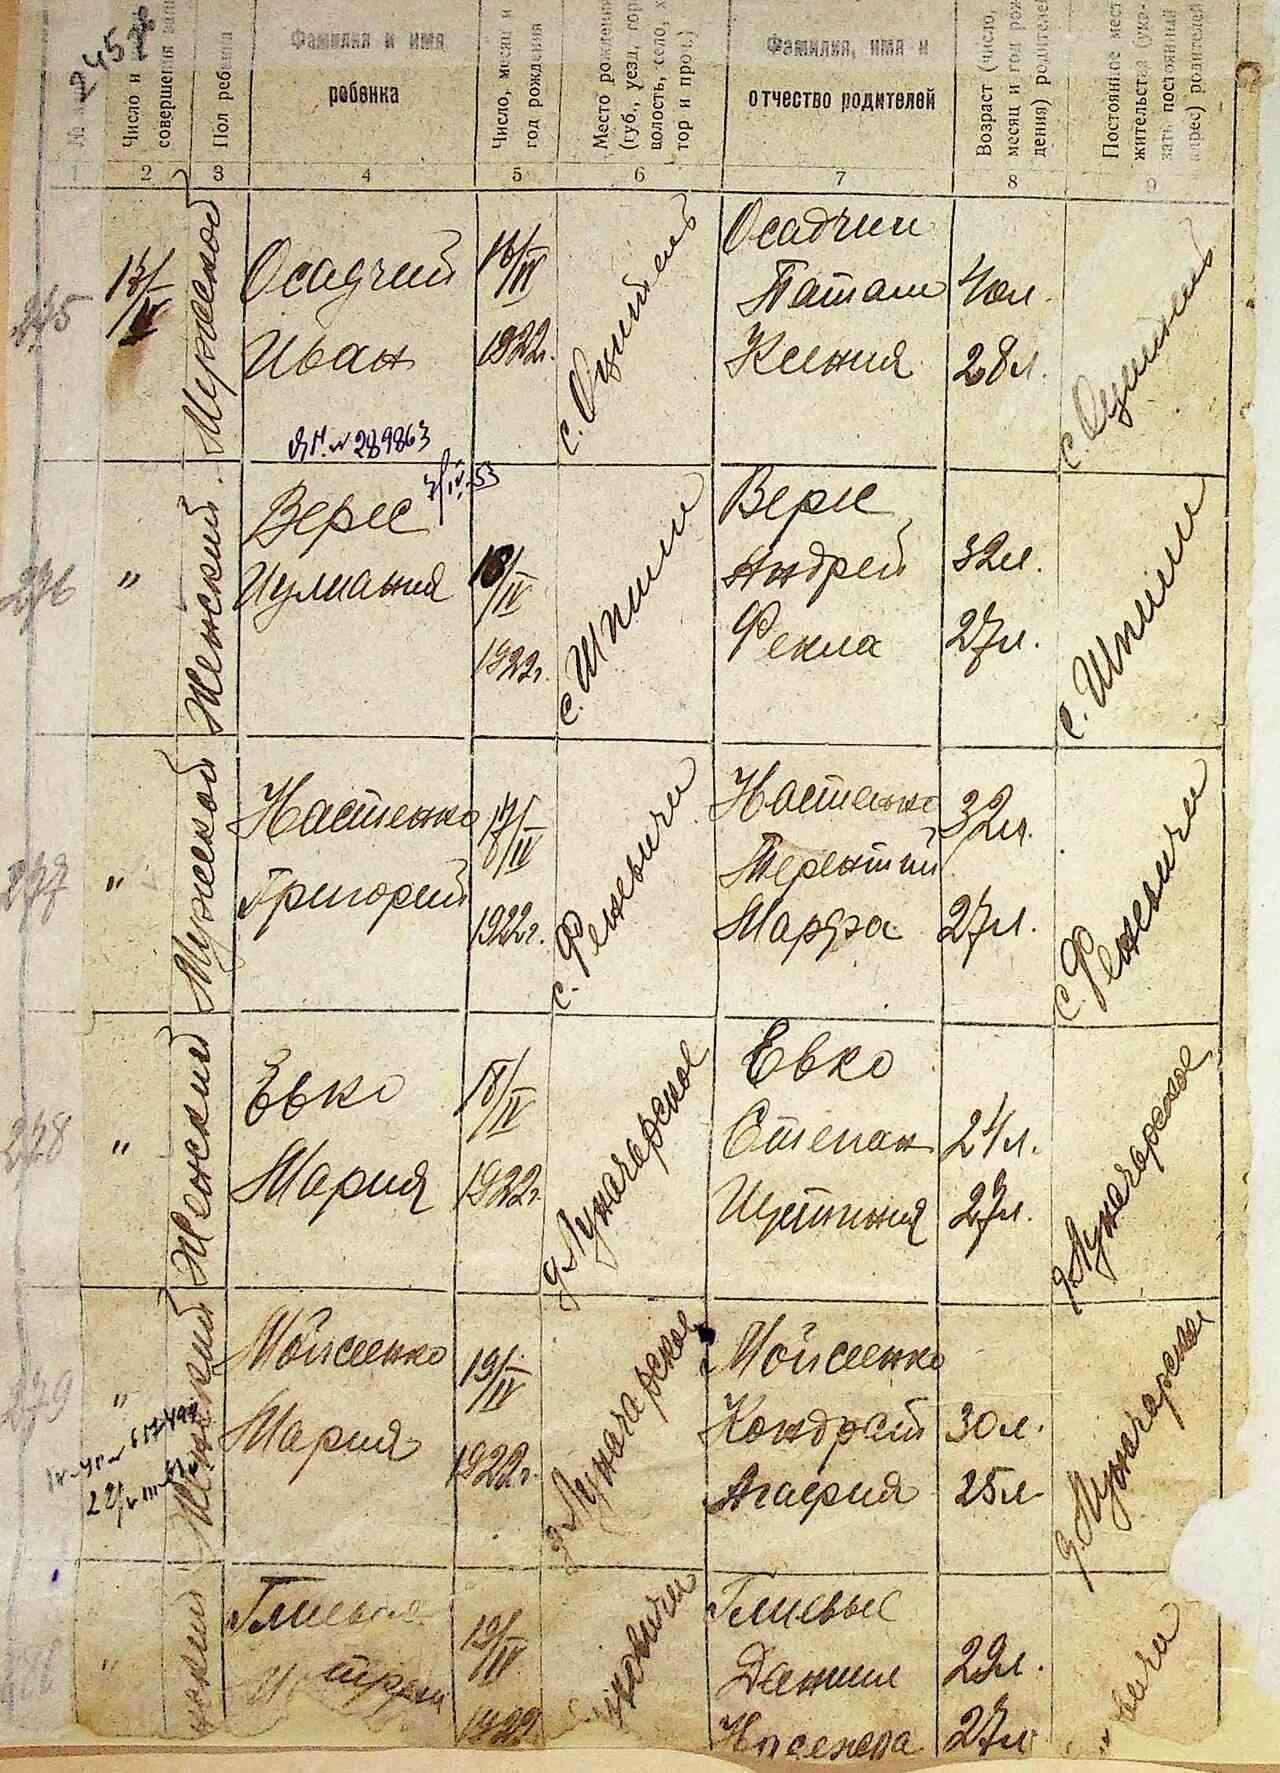 2457
Число и
совершения
Пол ребенка
Фамилия и имя
ребенка
Число, месяц и
год рождения
Место рождения
(губ., уезд, гор
волость, село, х
тор и проч.)
Фамилия, имя и
отчество родителей
Возраст (число,
месяц и год рож
дения) родителей
Постоянное мест
жительства (ука-
зать постоянный
адрес) родителей
1 2 3 4 5 6 7 8 9
275
Мужской
Осадчий
Иван
16/IV
1922г.
Осадчии
Паташ
Ксения
40л.
28л.
№ 289863
276
"
Женский
Верес
Иулиания
/IV-53
18/IV
1922г.
с. Шпили
Верес
Андрей
Фекла
32л.
27л.
с. Шпили
277
"
Мужской
Настенко
Григорий
17/IV
1922г.
с. Феневичи
Настенко
Терентий
Марфа
32л.
27л.
с. Феневичи
278
"
Женский
Евко
Мария
18/IV
1922г.
д Луначарское
Евко
Степан
Иустиния
24л.
23л.
д Луначарское
279
"
Женский
Мойсеенко
Мария
19/IV
1922г.
д Луначарское
Мойсеенко
Кондрат
Агафия
30л.
25л
д Луначарское
"
19/IV
1922
Глиевые
Даниил
29л.
27л